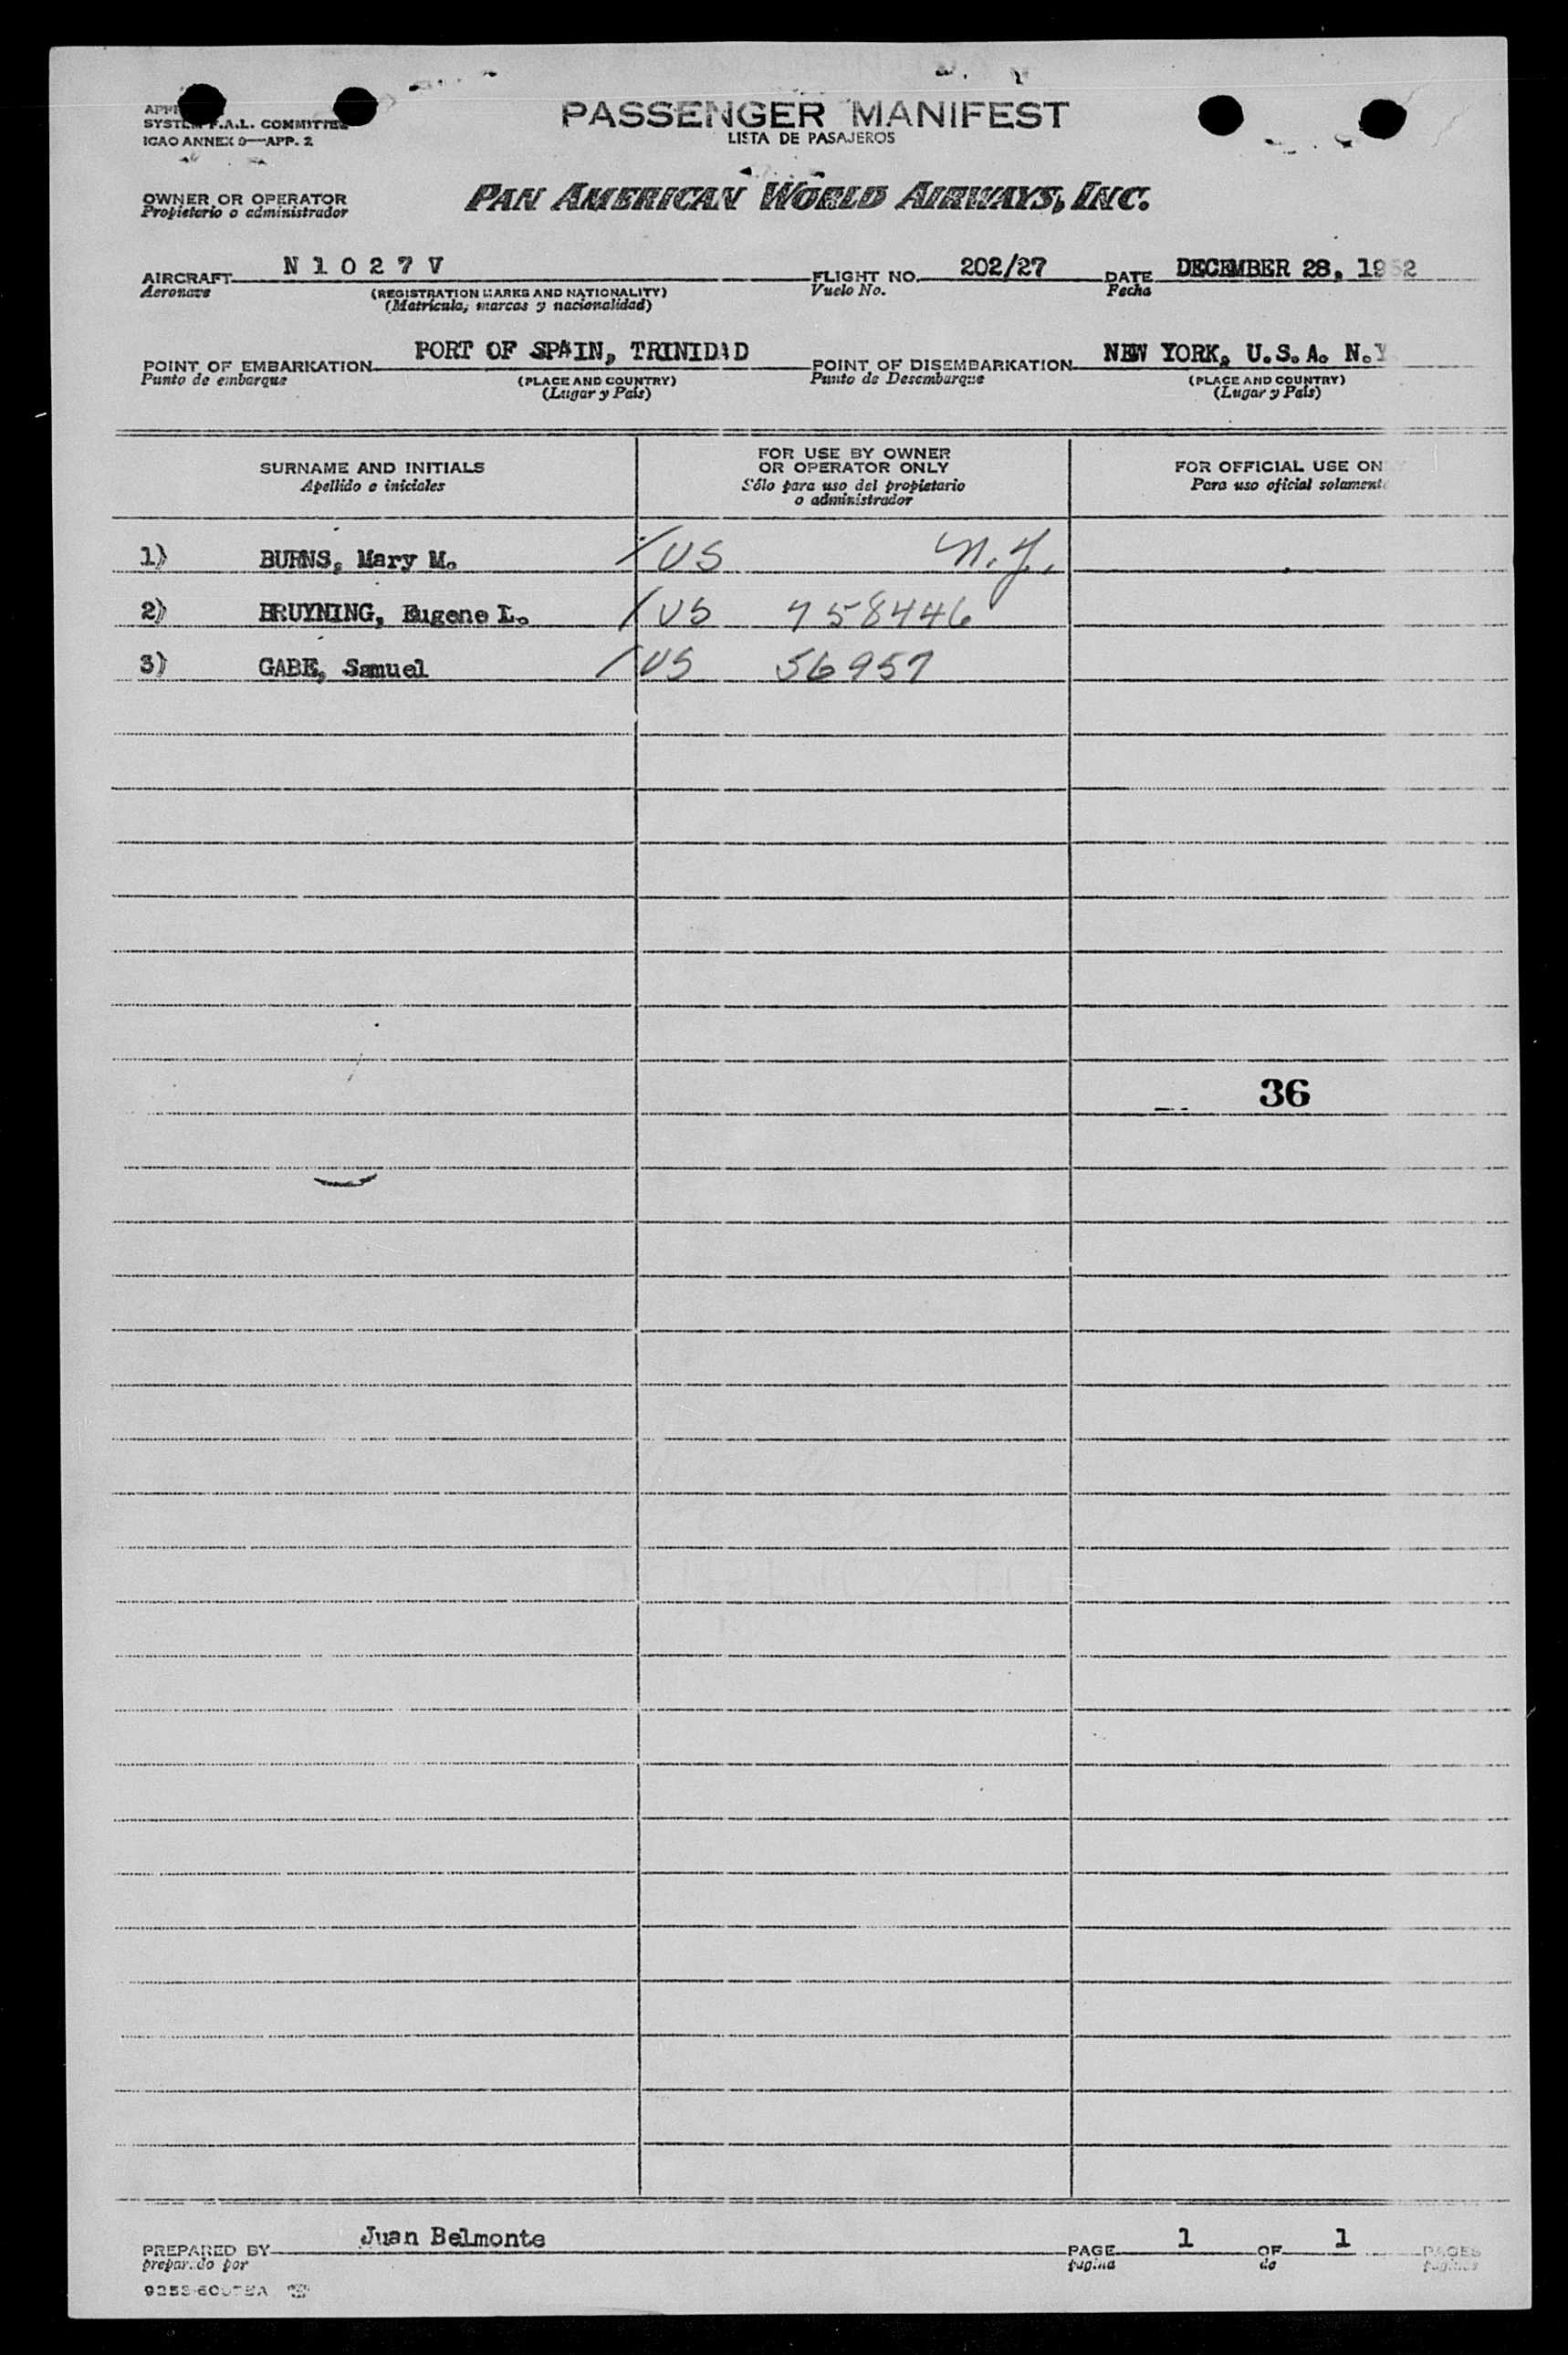 PASSENGER MANIFEST
LISTA DE PASAJEROS
SYSTEM F.A.L. COMMITTEE
ICAO ANNEX 9—APP. 2
OWNER OR OPERATOR
Propietario o administrador
PAN AMERICAN WORLD AIRWAYS, INC.
AIRCRAFT N 1 0 2 7 V FLIGHT NO. 202/27 DATE DECEMBER 28, 1952
Aeronave (REGISTRATION MARKS AND NATIONALITY) Vuelo No. Fecha
(Matrícula, marcas y nacionalidad)
POINT OF EMBARKATION PORT OF SPAIN, TRINIDAD POINT OF DISEMBARKATION NEW YORK, U.S.A. N.Y
Punto de embarque (PLACE AND COUNTRY) Punto de Desembarque (PLACE AND COUNTRY)
(Lugar y País) (Lugar y País)
SURNAME AND INITIALS
Apellido e iniciales
FOR USE BY OWNER
OR OPERATOR ONLY
Sólo para uso del propietario
o administrador
FOR OFFICIAL USE ON
Para uso oficial solamente
1) BURNS, Mary M. / US N.J.
2) BRUYNING, Eugene L. / US 758446
3) GABE, Samuel / US 56957
36
PREPARED BY Juan Belmonte PAGE 1 OF 1 PAGES
preparado por pagina de paginas